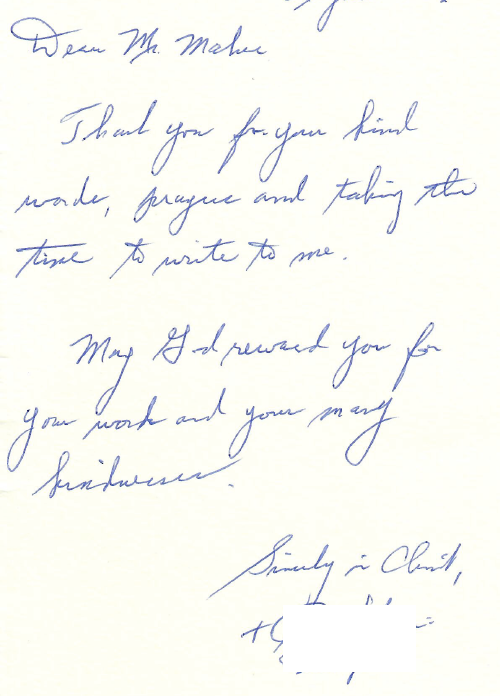 Dear Mr. Maher
Thank you for your kind
words, prayers and taking the
time to write to me.
May G-d reward you for
your work and your many
kindnesses.
Sincerly in Christ,
+